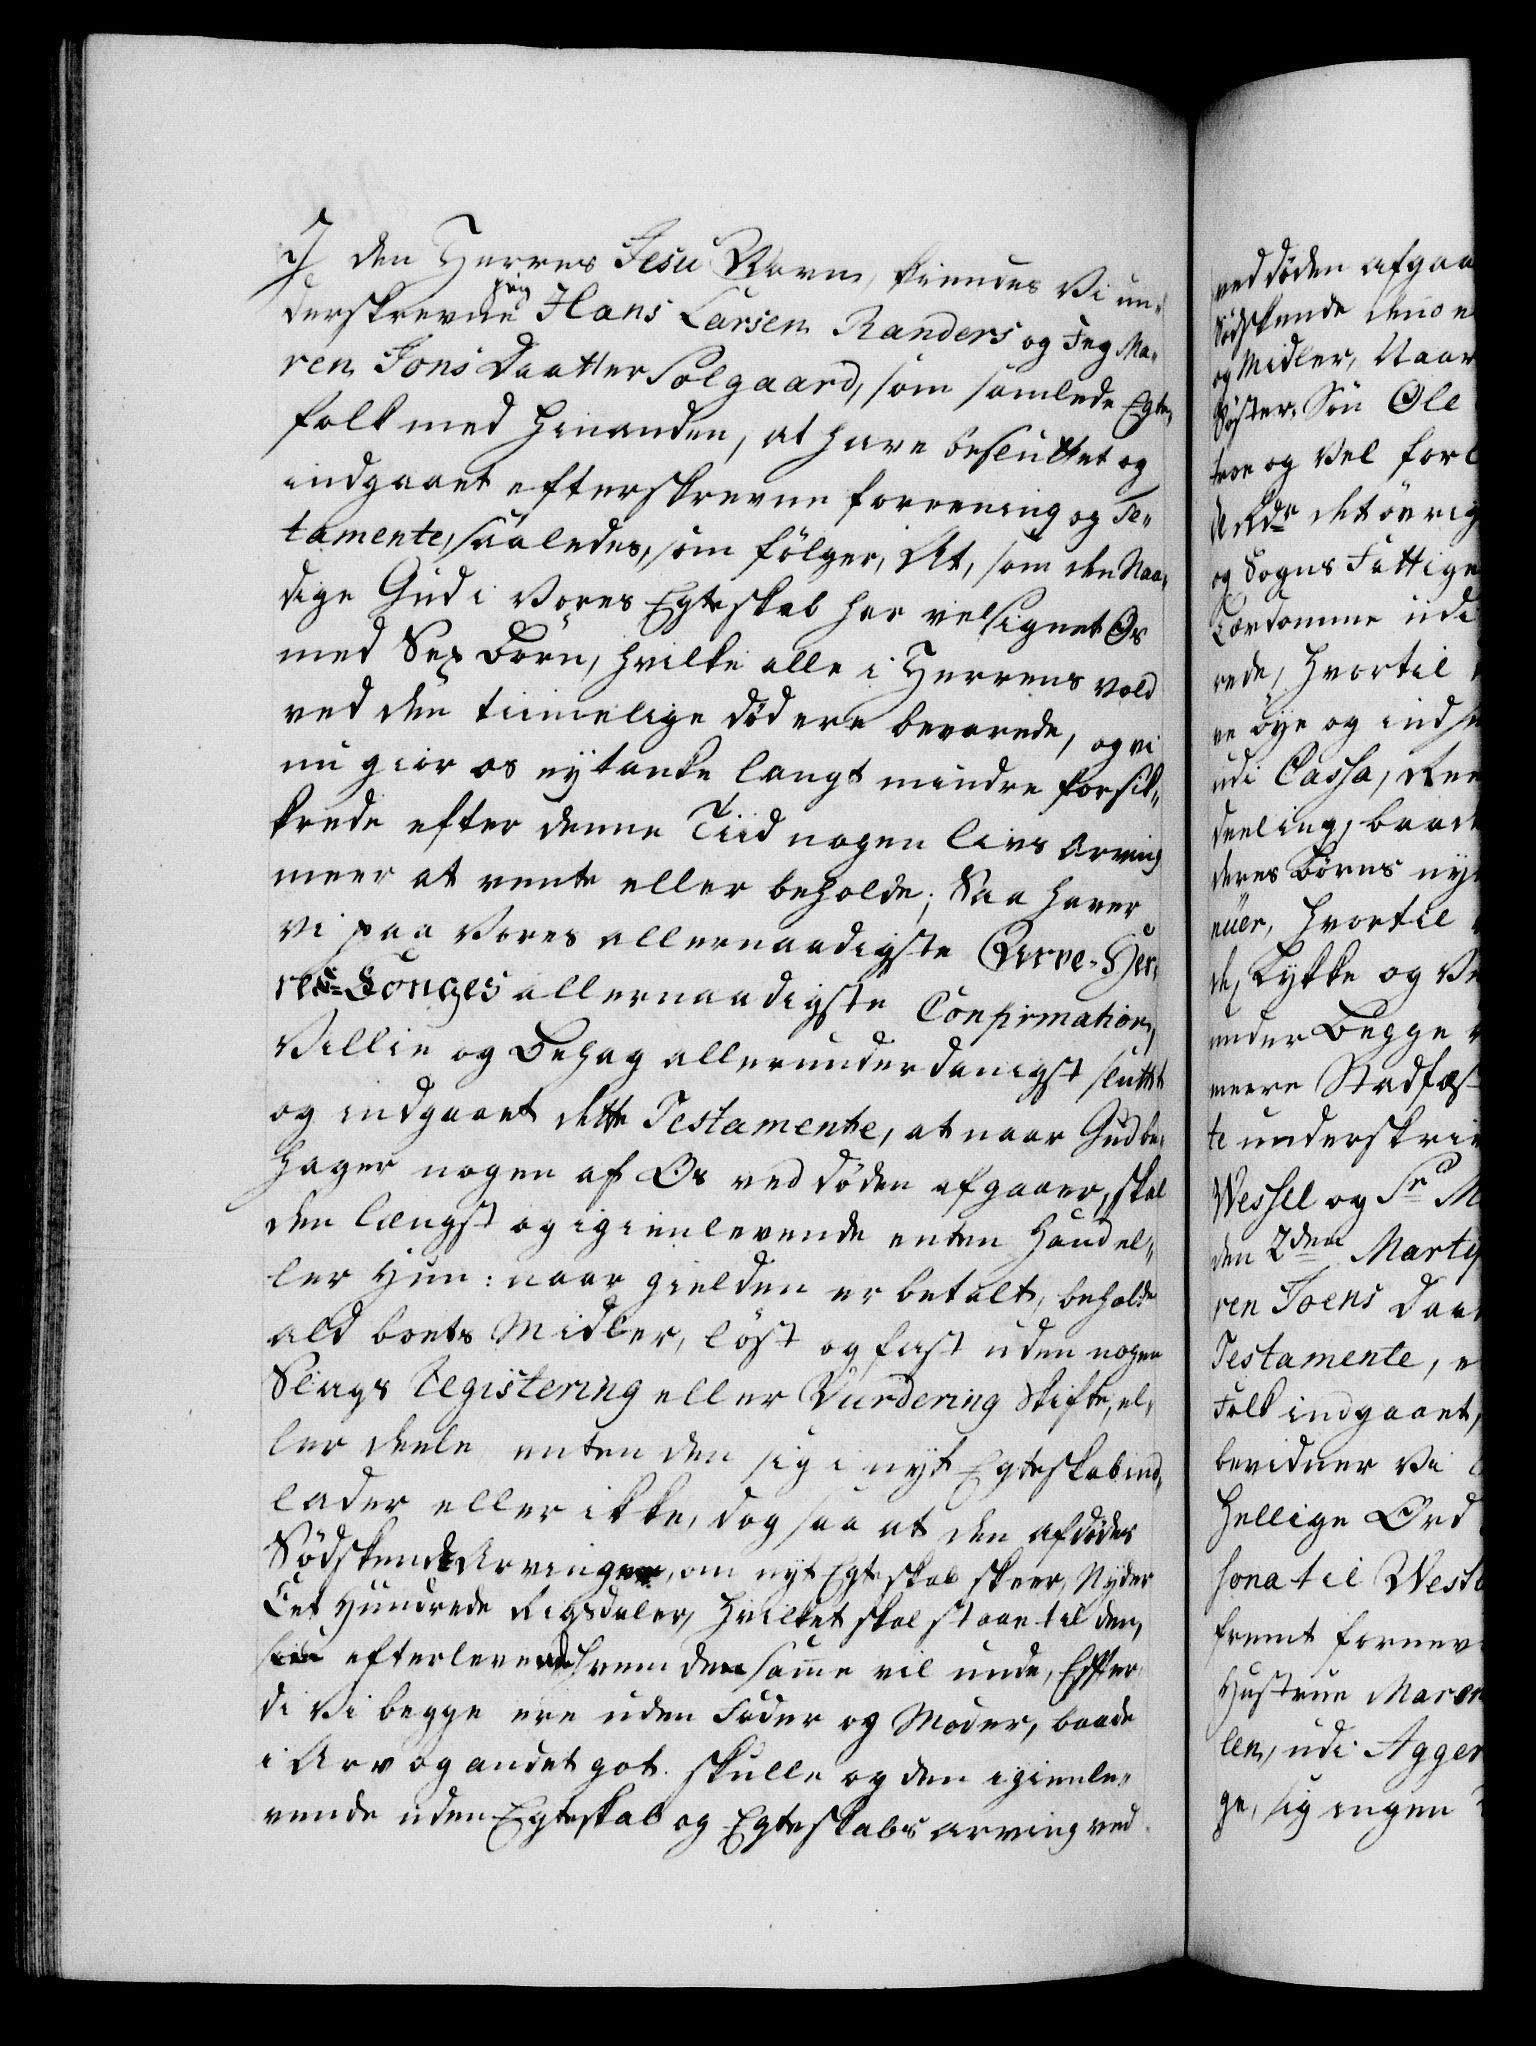 I den Herres Jesu Navn, kiendes Vi un„
derskrevne jeg Hans Larsen Randers og Jeg Ma„
ren Jons Daatter Solgaard, som samlede Egte„
folk med hinanden, at have besluttet og
indgaaet efterskrevne forening og Te„
tamente, saaledes, som følger, At, som den Naa„
dige Gud i Vores Egteskab har velsignet Os
med Sex Børn, hvilke alle i Herrens vold
ved den timelige død ere bevarede, og vi
nu giør os ey tanke langt mindre forsik„
krede efter denne Tiid nogen livs Arving
meer at vente eller beholde; Saa haver
vi paa Vores allernaadigste Arve-Her„
re Konges allernaadigste Confirmation,
Villie og Behag allerunderdanigst sluttet
og indgaaet dette Testamente, at naar Gud be„
hager nogen af Os ved døden afgaaer, skal
den længst og igienlevende enten Hand el„
ler Hun: naar gielden er betalt, beholde
ald boets Midler, løst og fast uden nogen
Slags Registering eller Vurdering Skifte, el„
ler deele enten den sig i nyt Egteskab ind„
lader eller ikke, dog saa at den afdødes
Sødskende Arvinger, om nyt Egteskab skeer, Nyder
Eet Hundrede Rigsdaler, hvilket skal staae til den,
efterlevende hvem den samme vil unde, Efter„
di Vi begge ere uden Fader og Moder, baade
i Arv og andet got. Skulle og den igienle„
vende uden Egteskab og Egteskabs arving ved
ved døden afgaa
Sødskende
og Midler, Naar
Søster-Søn Ole
troe og Vel for
de Rdr det øvrig
og Sogns Fattige
Lærdomme udi
rede, hvortil
ve øye og indse
udi Cassa,
deeling, baade
deres Børns ny
euer, hvortil
de, Lykke og Ve
under Begge
meere Stadfæs
te underskri
Wessel og Sr M
den 2den Marty
ren Joens Daa
Testamente, e
Folk indgaaet,
bevidner Vi
hellige Ord
sona til West
fremt forne
Hustrue Maren
len, udi Agger
ge, sig ingen